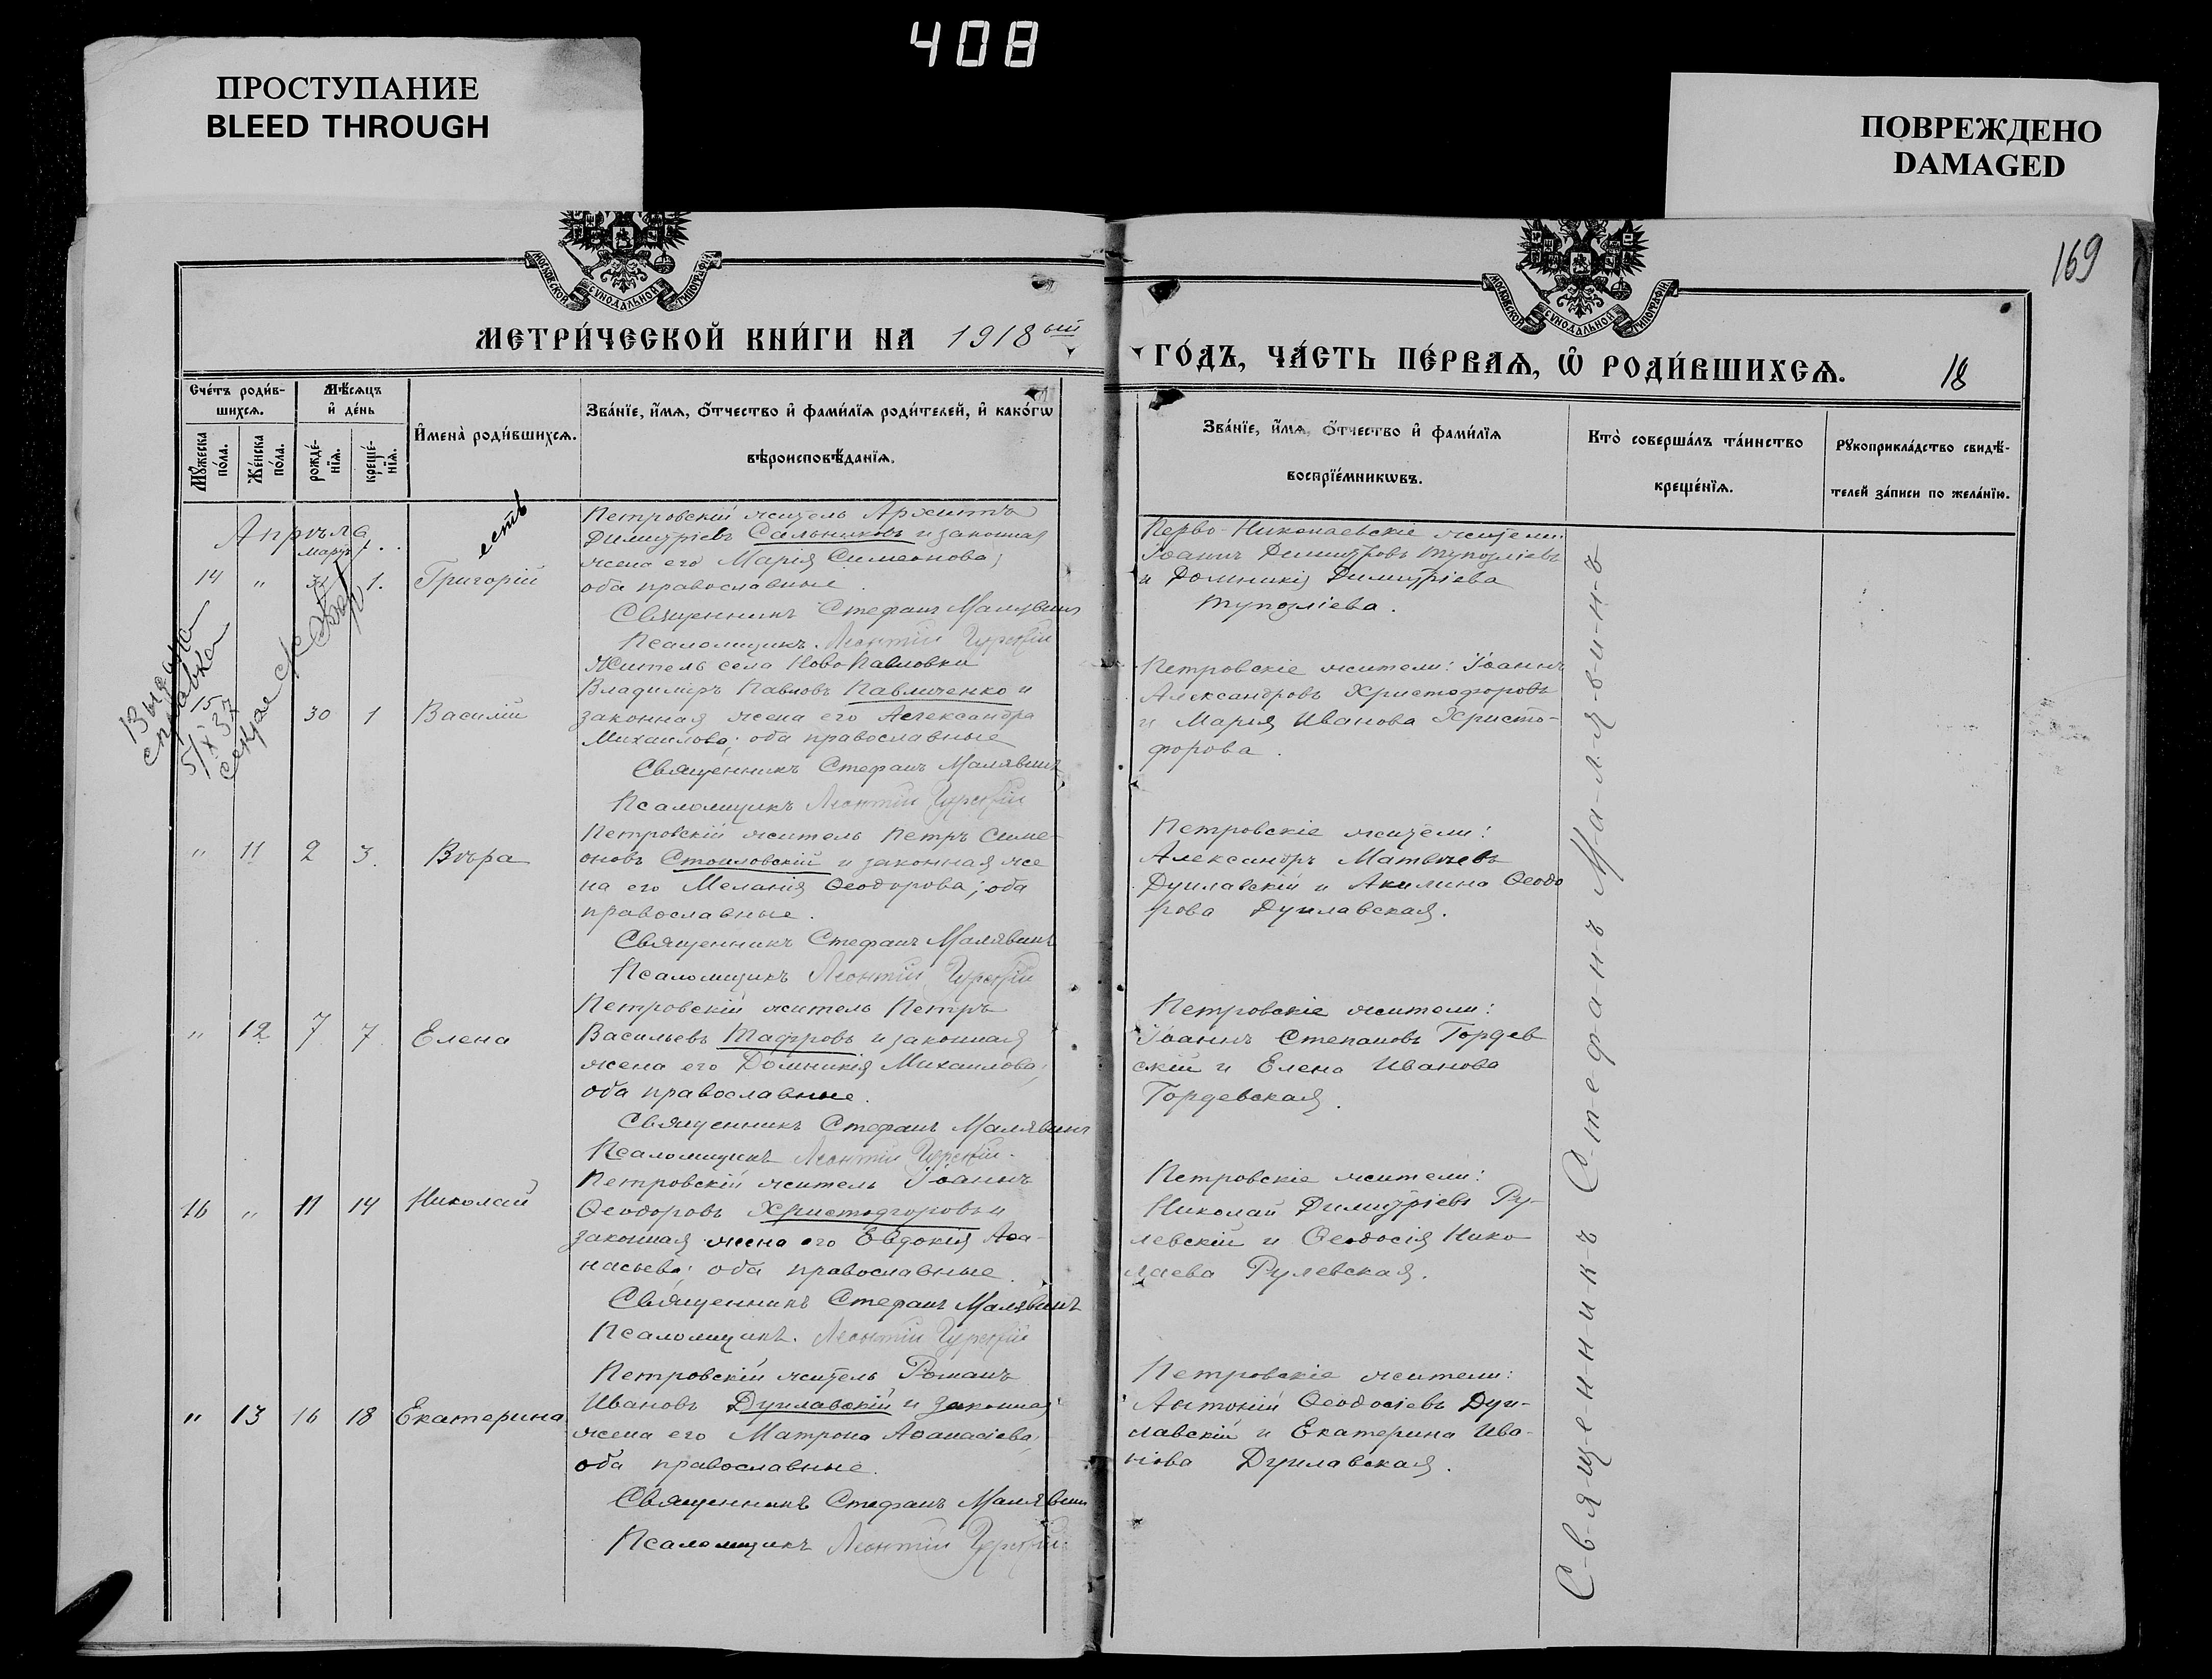 408
ПРОСТУПАНИЕ
BLEED THROUGH
ПОВРЕЖДЕНО
DAMAGED
169
МОСКОВСКОЙ СѴНОДАЛЬНОЙ ТИПОГРАФІИ
МОСКОВСКОЙ СѴНОДАЛЬНОЙ ТИПОГРАФІИ
МЕТРИ́ЧЕСКОЙ КНИ́ГИ НА 1918 ый
ГО́ДЪ, ЧА́СТЬ ПЕ́РВАѦ, Ѽ РОДИ́ВШИХСѦ.
18
Сче́тъ роди́в-
шихсѧ.
Мѣ́сѧцъ
и҆ де́нь
Мꙋ́жеска
по́ла.
Же́нска
по́ла.
рожде́-
нїѧ.
креще́-
нїѧ.
И҆мена̀ роди́вшихсѧ.
Зва́нїе, и҆́мѧ, ѻ҆́тчество и҆ фами́лїѧ роди́телей, и҆ како́гѡ
вѣроисповѣ́данїѧ.
Зва́нїе, и҆́мѧ, ѻ҆́тчество и҆ фами́лїѧ
воспрїе́мникѡвъ.
Кто̀ соверша́лъ та́инство
креще́нїѧ.
Рꙋкоприкла́дство свидѣ́-
телей за́писи по жела́нїю.
Апрѣль
есть
Мартъ
14 " 31 1. Григорій
Петровскій житель Архиппъ
Димитріевъ Сальниковъ и законная
жена его Марія Симеонова;
оба православные
Священникъ Стефанъ Малявинъ
Псаломщикъ Леонтій
Перво-Николаевскіе жители:
Іоаннъ Димитровъ Тупозліевъ
и Домникія Димитріева
Тупозліева.
Выдана
справка
15
5/IX 37
30 1 Василій
Житель села Ново Павловки
Владиміръ Павловъ Павличенко и
законная жена его Александра
Михаилова; оба православные
Священникъ Стефанъ Малявинъ
Псаломщикъ Леонтій
Петровскіе жители: Іоаннъ
Александровъ Христофоровъ
и Марія Иванова Христо-
форова.
" 11 2 3. Вѣра
Петровскій житель Петръ Симе-
оновъ Стоиловскій и законная же
на его Меланія Ѳеодорова; оба
православные.
Священникъ Стефанъ Малявинъ
Псаломщикъ Леонтій
Петровскіе жители:
Александръ Матвѣевъ
Дуилавскій и Акилина Ѳеодо
рова Дуилавская.
" 12 7 7. Елена
Петровскій житель Петръ
Васильевъ Тафровъ и законная
жена его Домникія Михаилова;
оба православные.
Священникъ Стефанъ Малявинъ
Псаломщикъ Леонтій
Петровскіе жители:
Іоаннъ Степановъ Гордев
скій и Елена Иванова
Гордевская.
16 " 11 14 Николай
Петровскій житель Іоаннъ
Ѳеодоровъ Христофоровъ и
законная жена его Евдокія Аѳа-
насьева; оба православные.
Священникъ Стефанъ Малявинъ
Псаломщикъ. Леонтій
Петровскіе жители:
Николай Димитріевъ Ру-
левскій и Ѳеодосія Нико
лаева Рулевская.
" 13 16 18 Екатерина
Петровскій житель Романъ
Ивановъ Дуилавскій и законная
жена его Матрона Аѳанасіева;
оба православные.
Священникъ Стефанъ Малявин
Псаломщикъ Леонтій
Петровскіе жители:
Антоній Ѳеодосіевъ Дуи-
лавскій и Екатерина Ива-
нова Дуилавская.
С-в-я-щ-е-н-н-и-к-ъ С-т-е-ф-а-н-ъ М-а-л-я-в-и-н-ъ